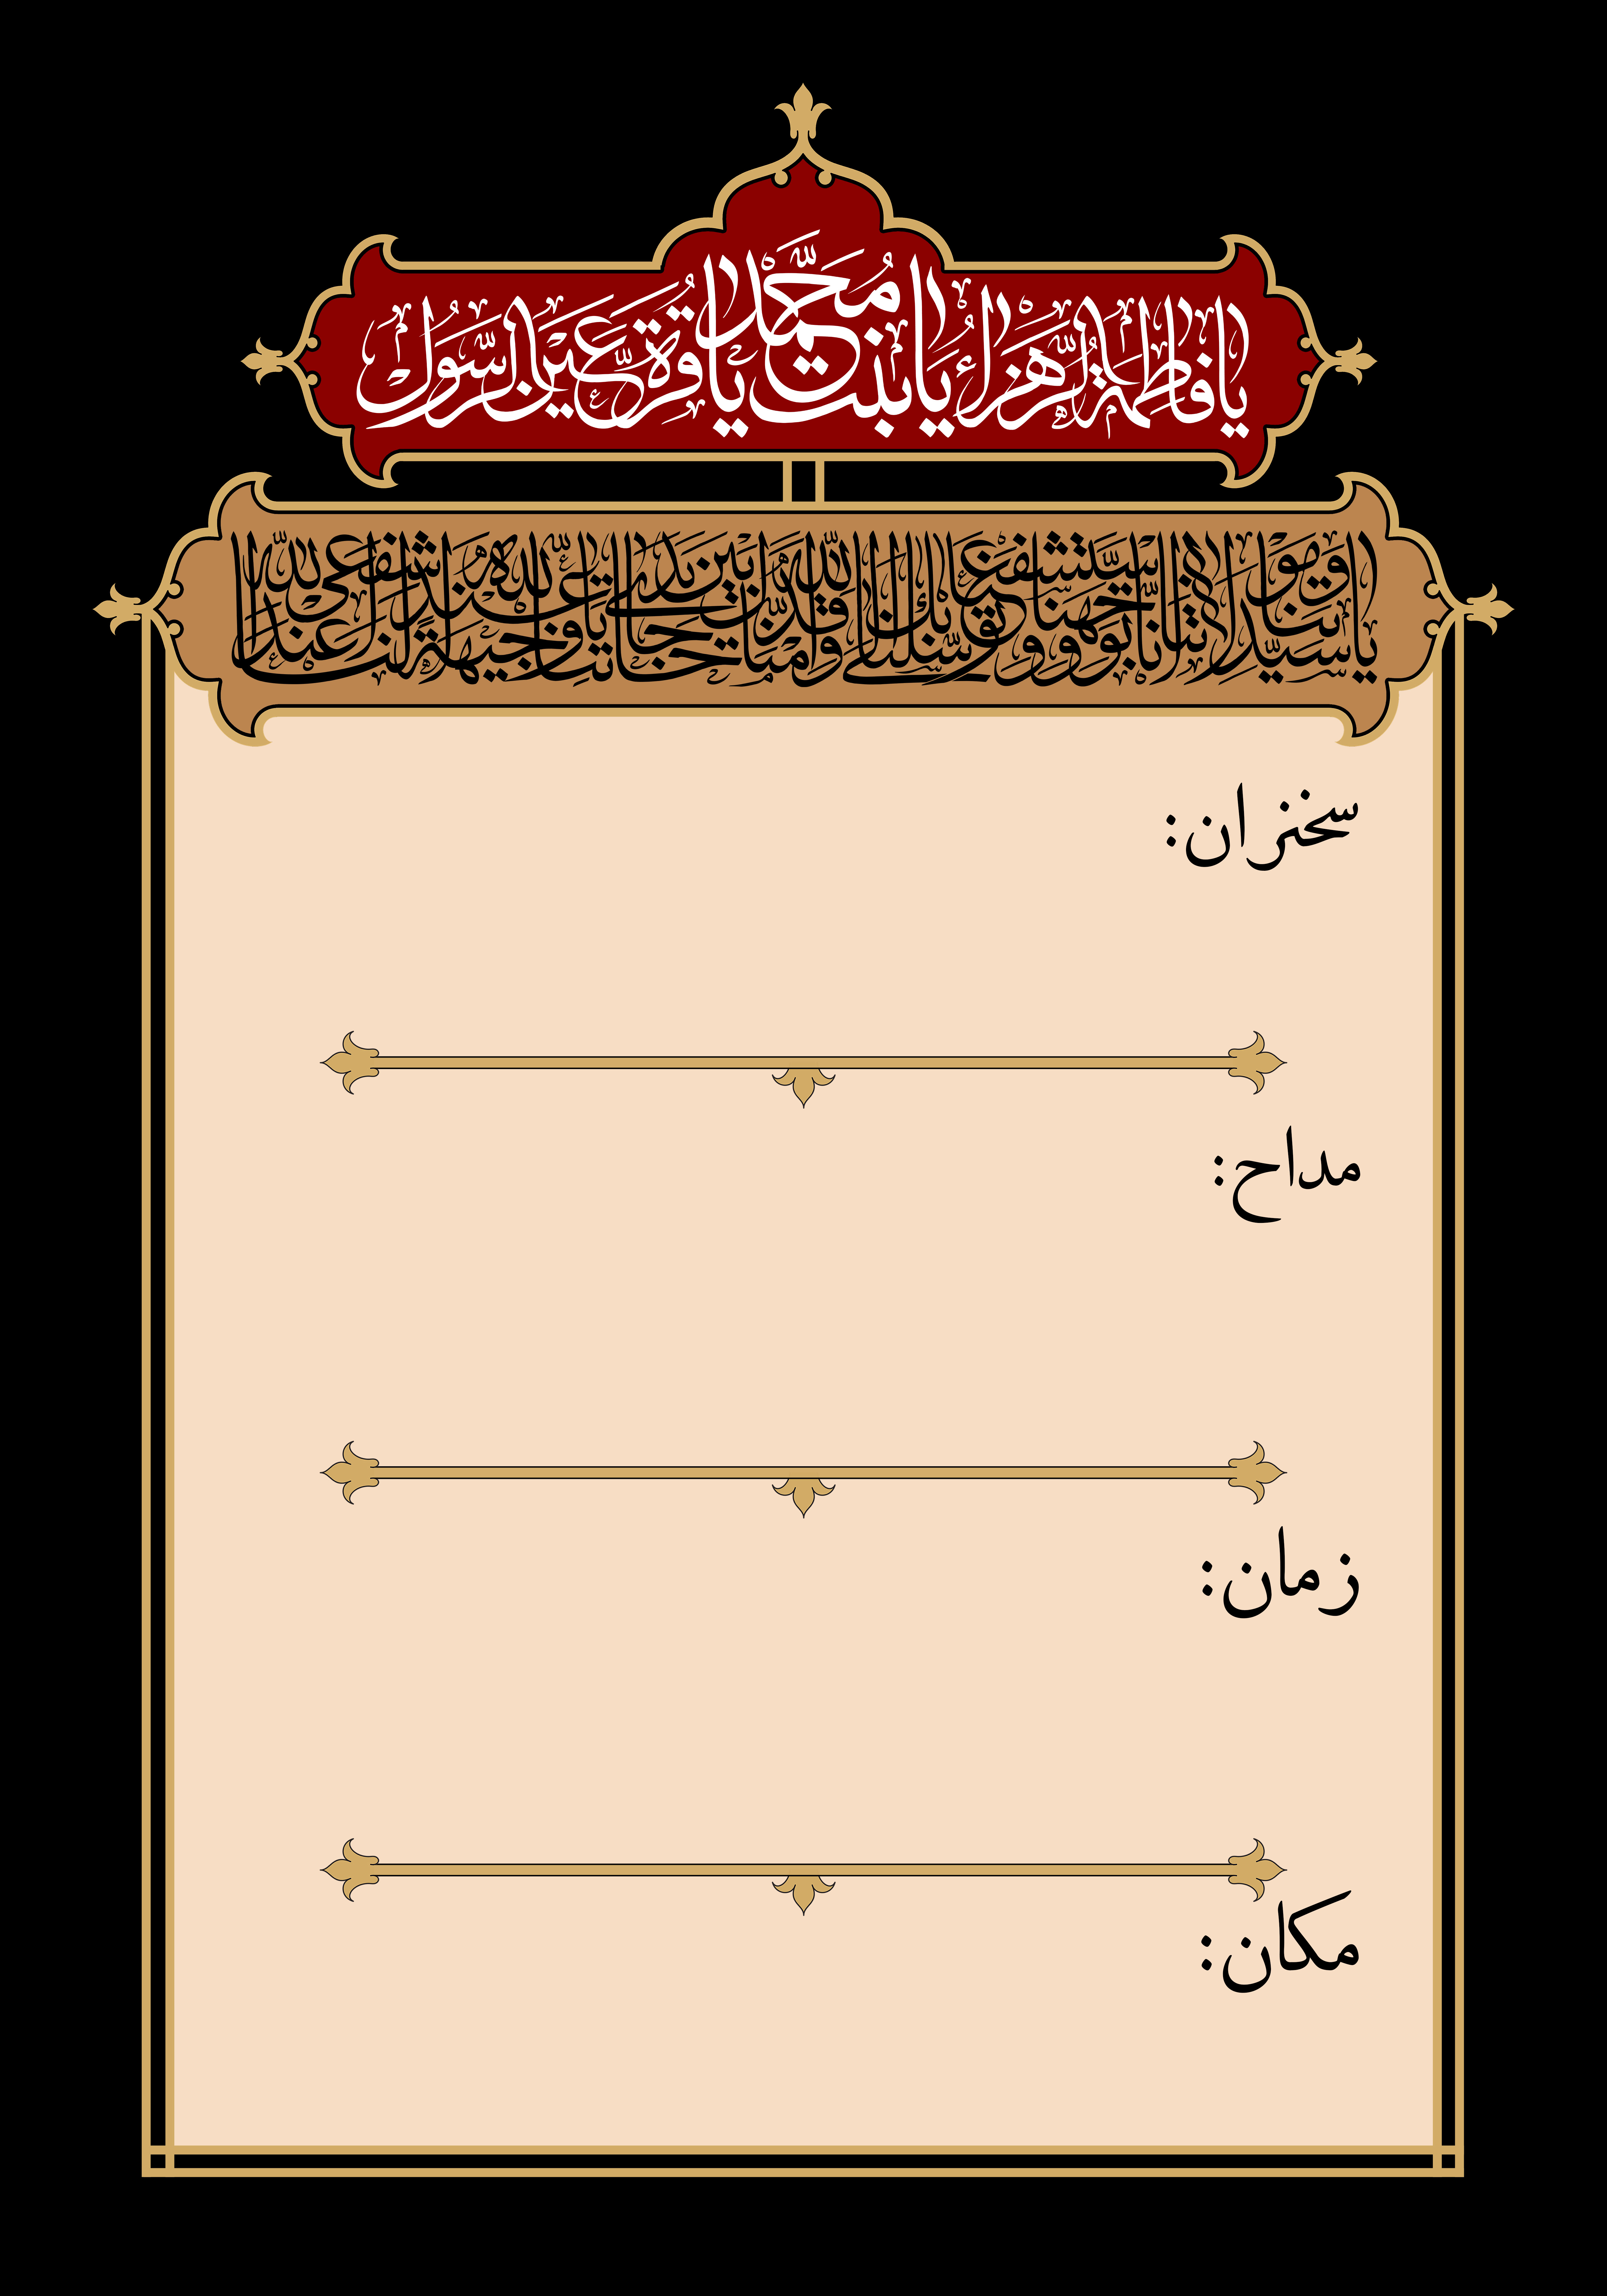 يا فاطمة الزهراء يا بنت محمد يا قرة عين الرسول
يا سيدتنا ومولاتنا إنا توجهنا واستشفعنا وتوسلنا بك إلى الله وقدمناك بين يدي حاجاتنا يا وجيهة عند الله اشفعي لنا عند الله
سخنران:
مداح:
زمان:
مکان: